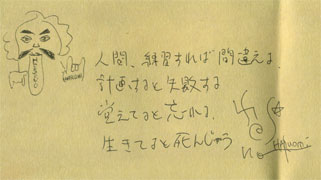 人間、練習すれば間違える
計画すると失敗する
覚えてると忘れる、
生きてると死んじゃう
HARUomi